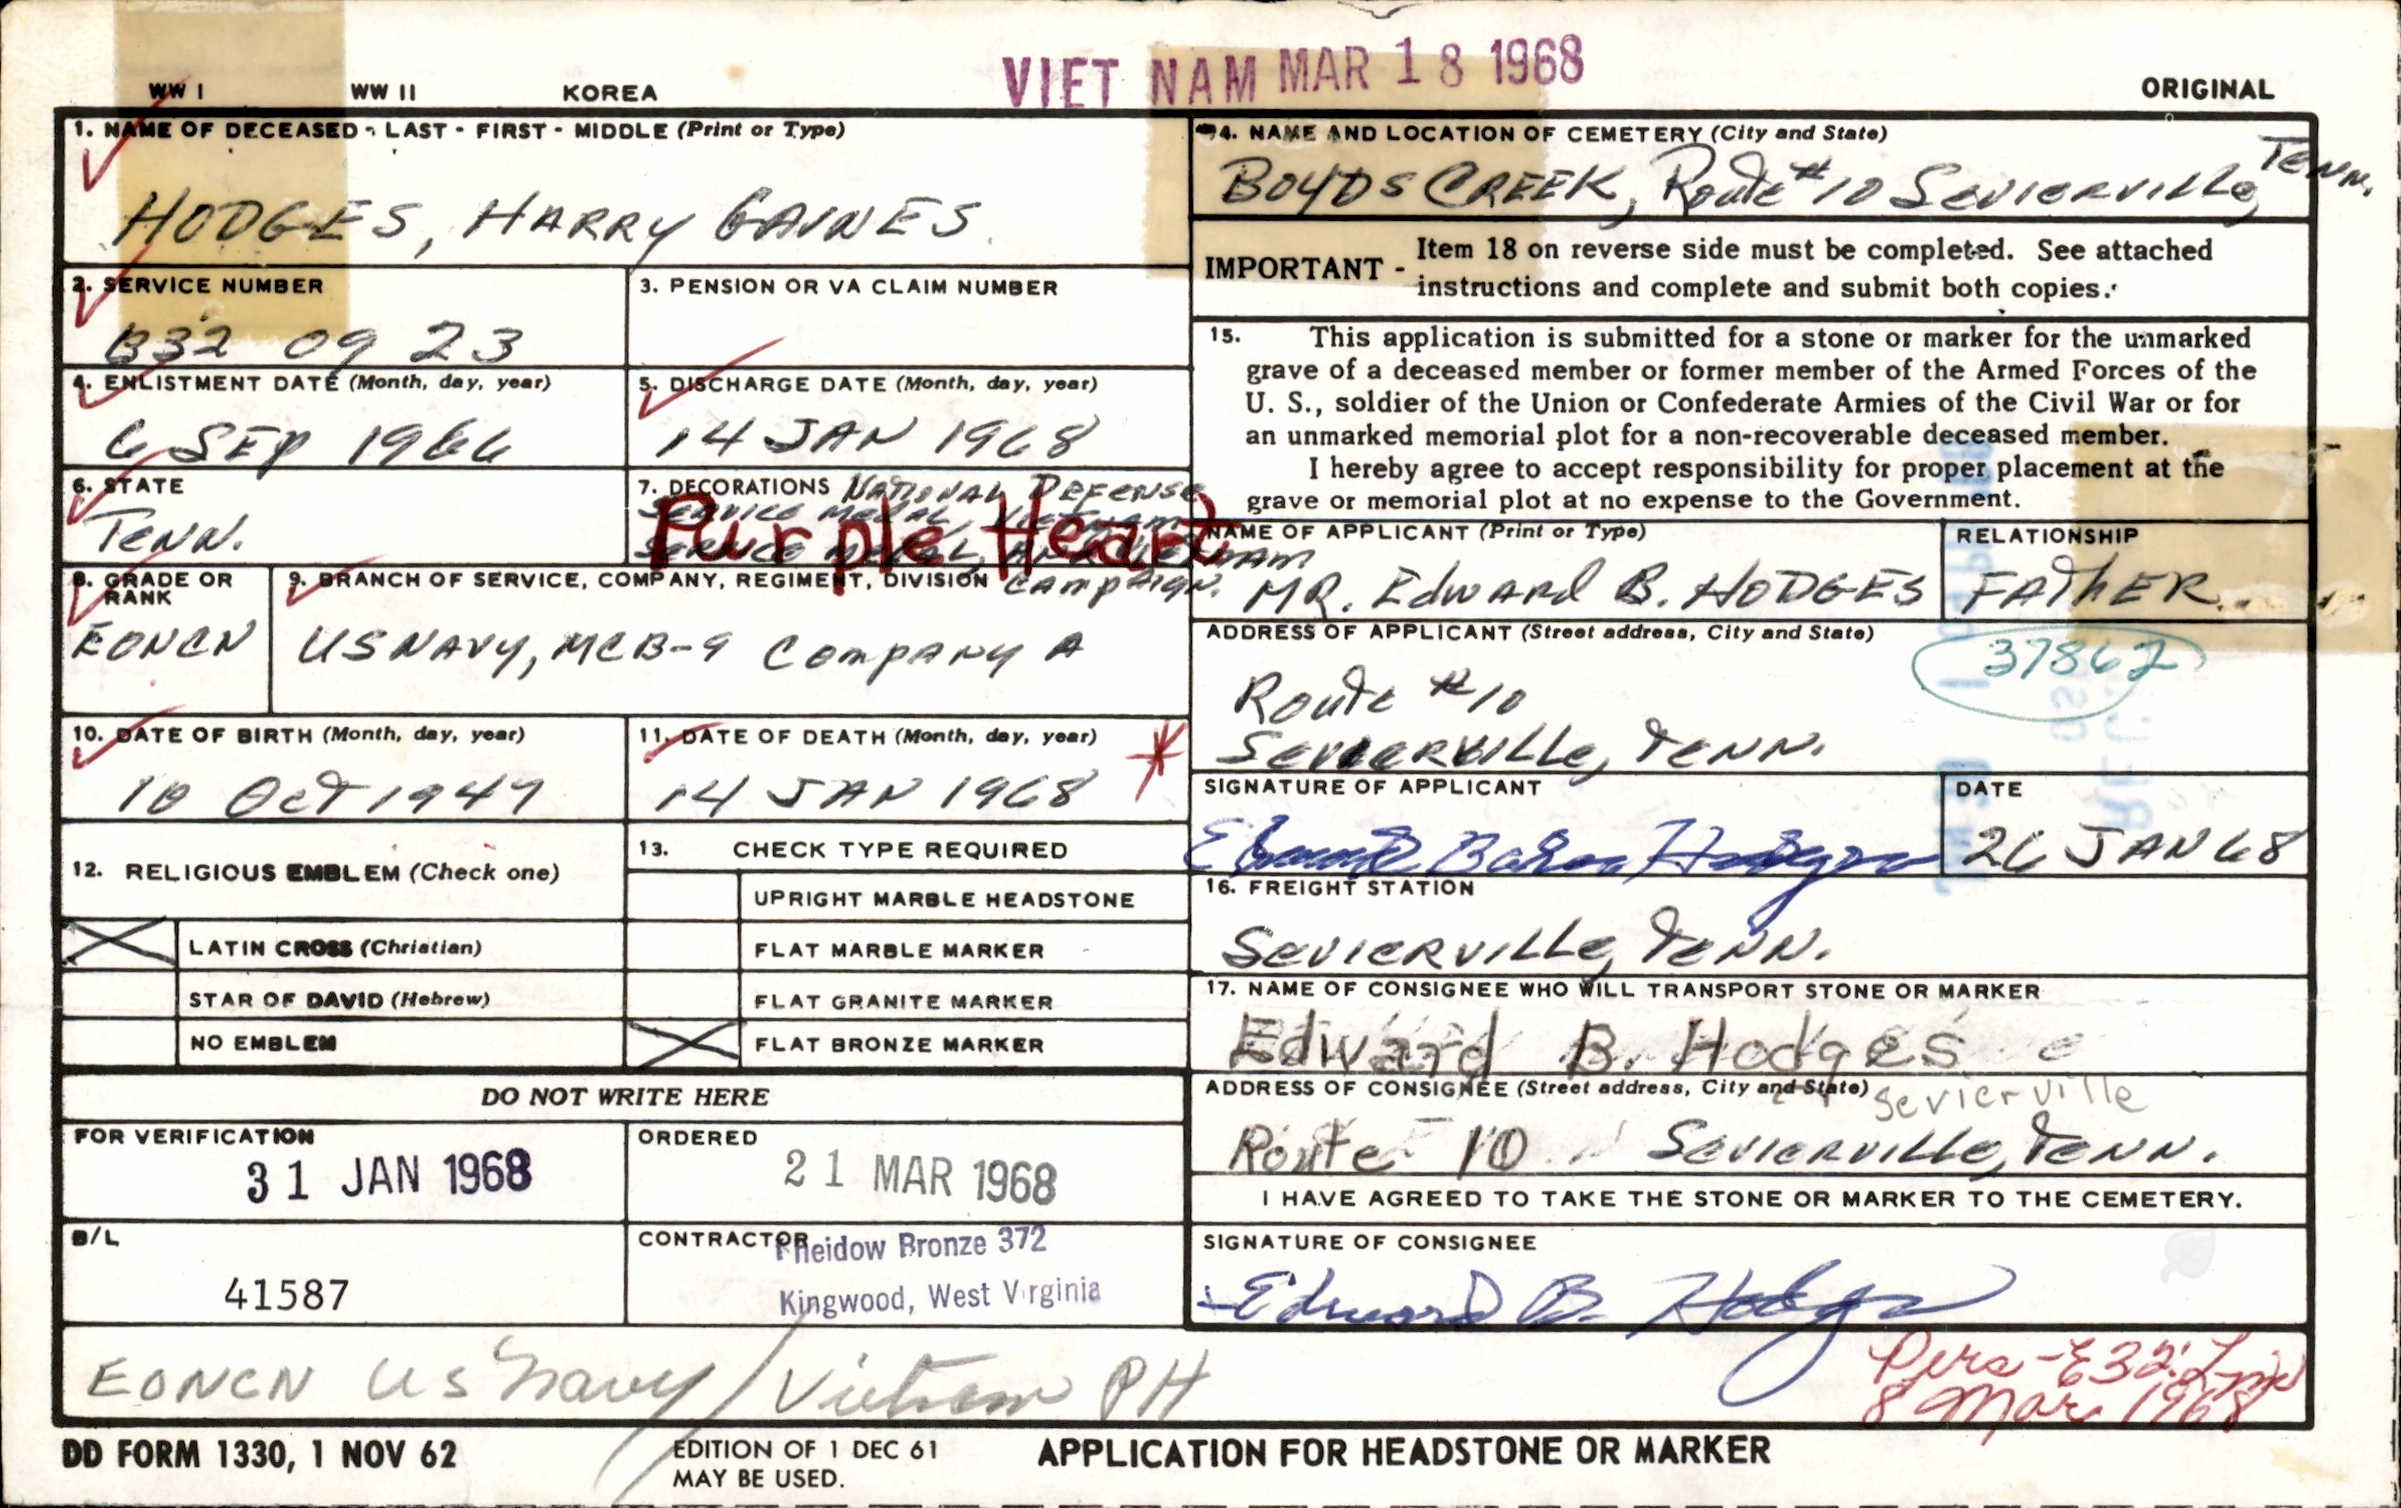 VIET NAM MAR 18 1968
WW I WW II KOREA ORIGINAL
1. NAME OF DECEASED - LAST - FIRST - MIDDLE (Print or Type)
HODGES, HARRY GAINES
2. SERVICE NUMBER
B32 09 23
3. PENSION OR VA CLAIM NUMBER
4. ENLISTMENT DATE (Month, day, year)
6 SEP 1966
5. DISCHARGE DATE (Month, day, year)
14 JAN 1968
6. STATE
TENN.
7. DECORATIONS NATIONAL DEFENSE
SERVICE MEDAL, VIETNAM
SERVICE MEDAL,
CAMPAIGN.
Purple Heart
8. GRADE OR RANK
EONCN
9. BRANCH OF SERVICE, COMPANY, REGIMENT, DIVISION
US NAVY, MCB-9 COMPANY A
10. DATE OF BIRTH (Month, day, year)
10 OCT 1947
11. DATE OF DEATH (Month, day, year)
14 JAN 1968
12. RELIGIOUS EMBLEM (Check one)
LATIN CROSS (Christian)
STAR OF DAVID (Hebrew)
NO EMBLEM
13. CHECK TYPE REQUIRED
UPRIGHT MARBLE HEADSTONE
FLAT MARBLE MARKER
FLAT GRANITE MARKER
FLAT BRONZE MARKER
DO NOT WRITE HERE
FOR VERIFICATION
31 JAN 1968
ORDERED
21 MAR 1968
B/L
41587
CONTRACTOR
heidow Bronze 372
Kingwood, West Virginia
14. NAME AND LOCATION OF CEMETERY (City and State)
BOYDS CREEK, Route #10 SEVIERVILLE, TENN.
IMPORTANT - Item 18 on reverse side must be completed. See attached
instructions and complete and submit both copies.
15. This application is submitted for a stone or marker for the unmarked
grave of a deceased member or former member of the Armed Forces of the
U. S., soldier of the Union or Confederate Armies of the Civil War or for
an unmarked memorial plot for a non-recoverable deceased member.
I hereby agree to accept responsibility for proper placement at the
grave or memorial plot at no expense to the Government.
NAME OF APPLICANT (Print or Type)
MR. Edward B. HODGES
RELATIONSHIP
FATHER
ADDRESS OF APPLICANT (Street address, City and State)
37862
Route #10
SEVIERVILLE, TENN.
SIGNATURE OF APPLICANT
DATE
26 JAN 68
16. FREIGHT STATION
SEVIERVILLE, TENN.
17. NAME OF CONSIGNEE WHO WILL TRANSPORT STONE OR MARKER
Edward B. Hodges
ADDRESS OF CONSIGNEE (Street address, City and State)
Sevierville
Route 10 SEVIERVILLE, TENN.
I HAVE AGREED TO TAKE THE STONE OR MARKER TO THE CEMETERY.
SIGNATURE OF CONSIGNEE
Edward B. Hodges
EONCN US Navy / Vietnam PH
Pers-E32
8 Mar 1968
DD FORM 1330, 1 NOV 62
EDITION OF 1 DEC 61
MAY BE USED.
APPLICATION FOR HEADSTONE OR MARKER